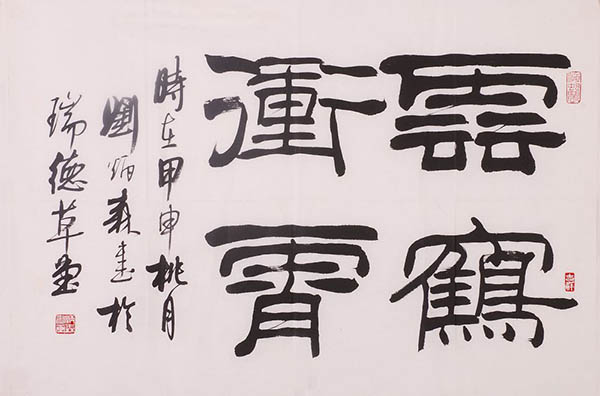 雲鶴
衝霄
時在甲申桃月
劉炳森書於
瑞德草堂